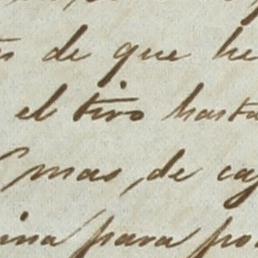 de que he
el tiro hasta
mas, de ca
ina para po